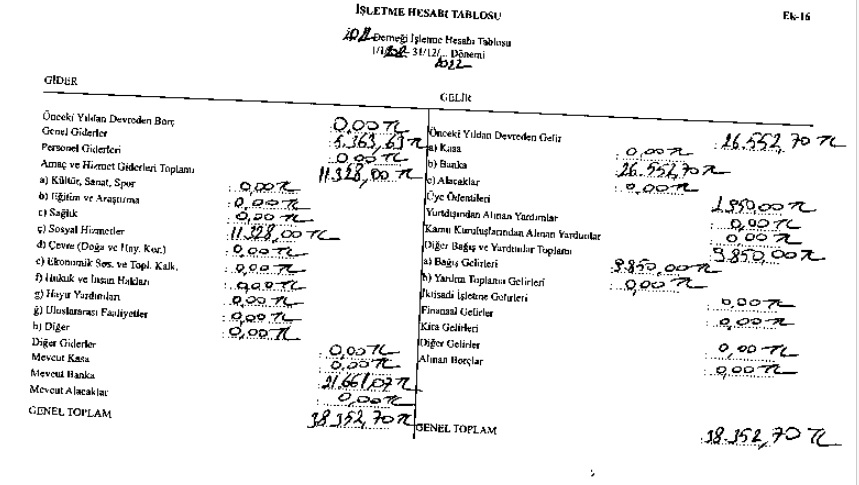 İŞLETME HESABI TABLOSU
Ek-16
Derneği İşletme Hesabı Tablosu
1/1/ 31/12/... Dönemi
2022
GİDER
Önceki Yıldan Devreden Borç 0,00 TL
Genel Giderler 5.363,63 TL
Personel Giderleri 0,00 TL
Amaç ve Hizmet Giderleri Toplamı 11.328,00 TL
a) Kültür, Sanat, Spor : 0,00 TL
b) Eğitim ve Araştırma : 0,00 TL
c) Sağlık : 0,00 TL
ç) Sosyal Hizmetler 11.328,00 TL
d) Çevre (Doğa ve Hay. Kor.) : 0,00 TL
e) Ekonomik Sos. ve Topl. Kalk. : 0,00 TL
f) Hukuk ve İnsan Hakları : 0,00 TL
g) Hayır Yardımları : 0,00 TL
ğ) Uluslararası Faaliyetler : 0,00 TL
h) Diğer 0,00 TL
Diğer Giderler : 0,00 TL
Mevcut Kasa : 0,00 TL
Mevcut Banka : 21.661,07 TL
Mevcut Alacaklar : 0,00 TL
GENEL TOPLAM 38.352,70 TL
GELİR
Önceki Yıldan Devreden Gelir : 26.552,70 TL
a) Kasa : 0,00 TL
b) Banka 26.552,70 TL
c) Alacaklar : 0,00 TL
Üye Ödentileri 1.950,00 TL
Yurtdışından Alınan Yardımlar : 0,00 TL
Kamu Kuruluşlarından Alınan Yardımlar 0,00 TL
Diğer Bağış ve Yardımlar Toplamı 9.850,00 TL
a) Bağış Gelirleri 9.850,00 TL
b) Yardım Toplama Gelirleri : 0,00 TL
İktisadi İşletme Gelirleri : 0,00 TL
Finansal Gelirler : 0,00 TL
Kira Gelirleri
Diğer Gelirler : 0,00 TL
Alınan Borçlar : 0,00 TL
GENEL TOPLAM : 38.352,70 TL